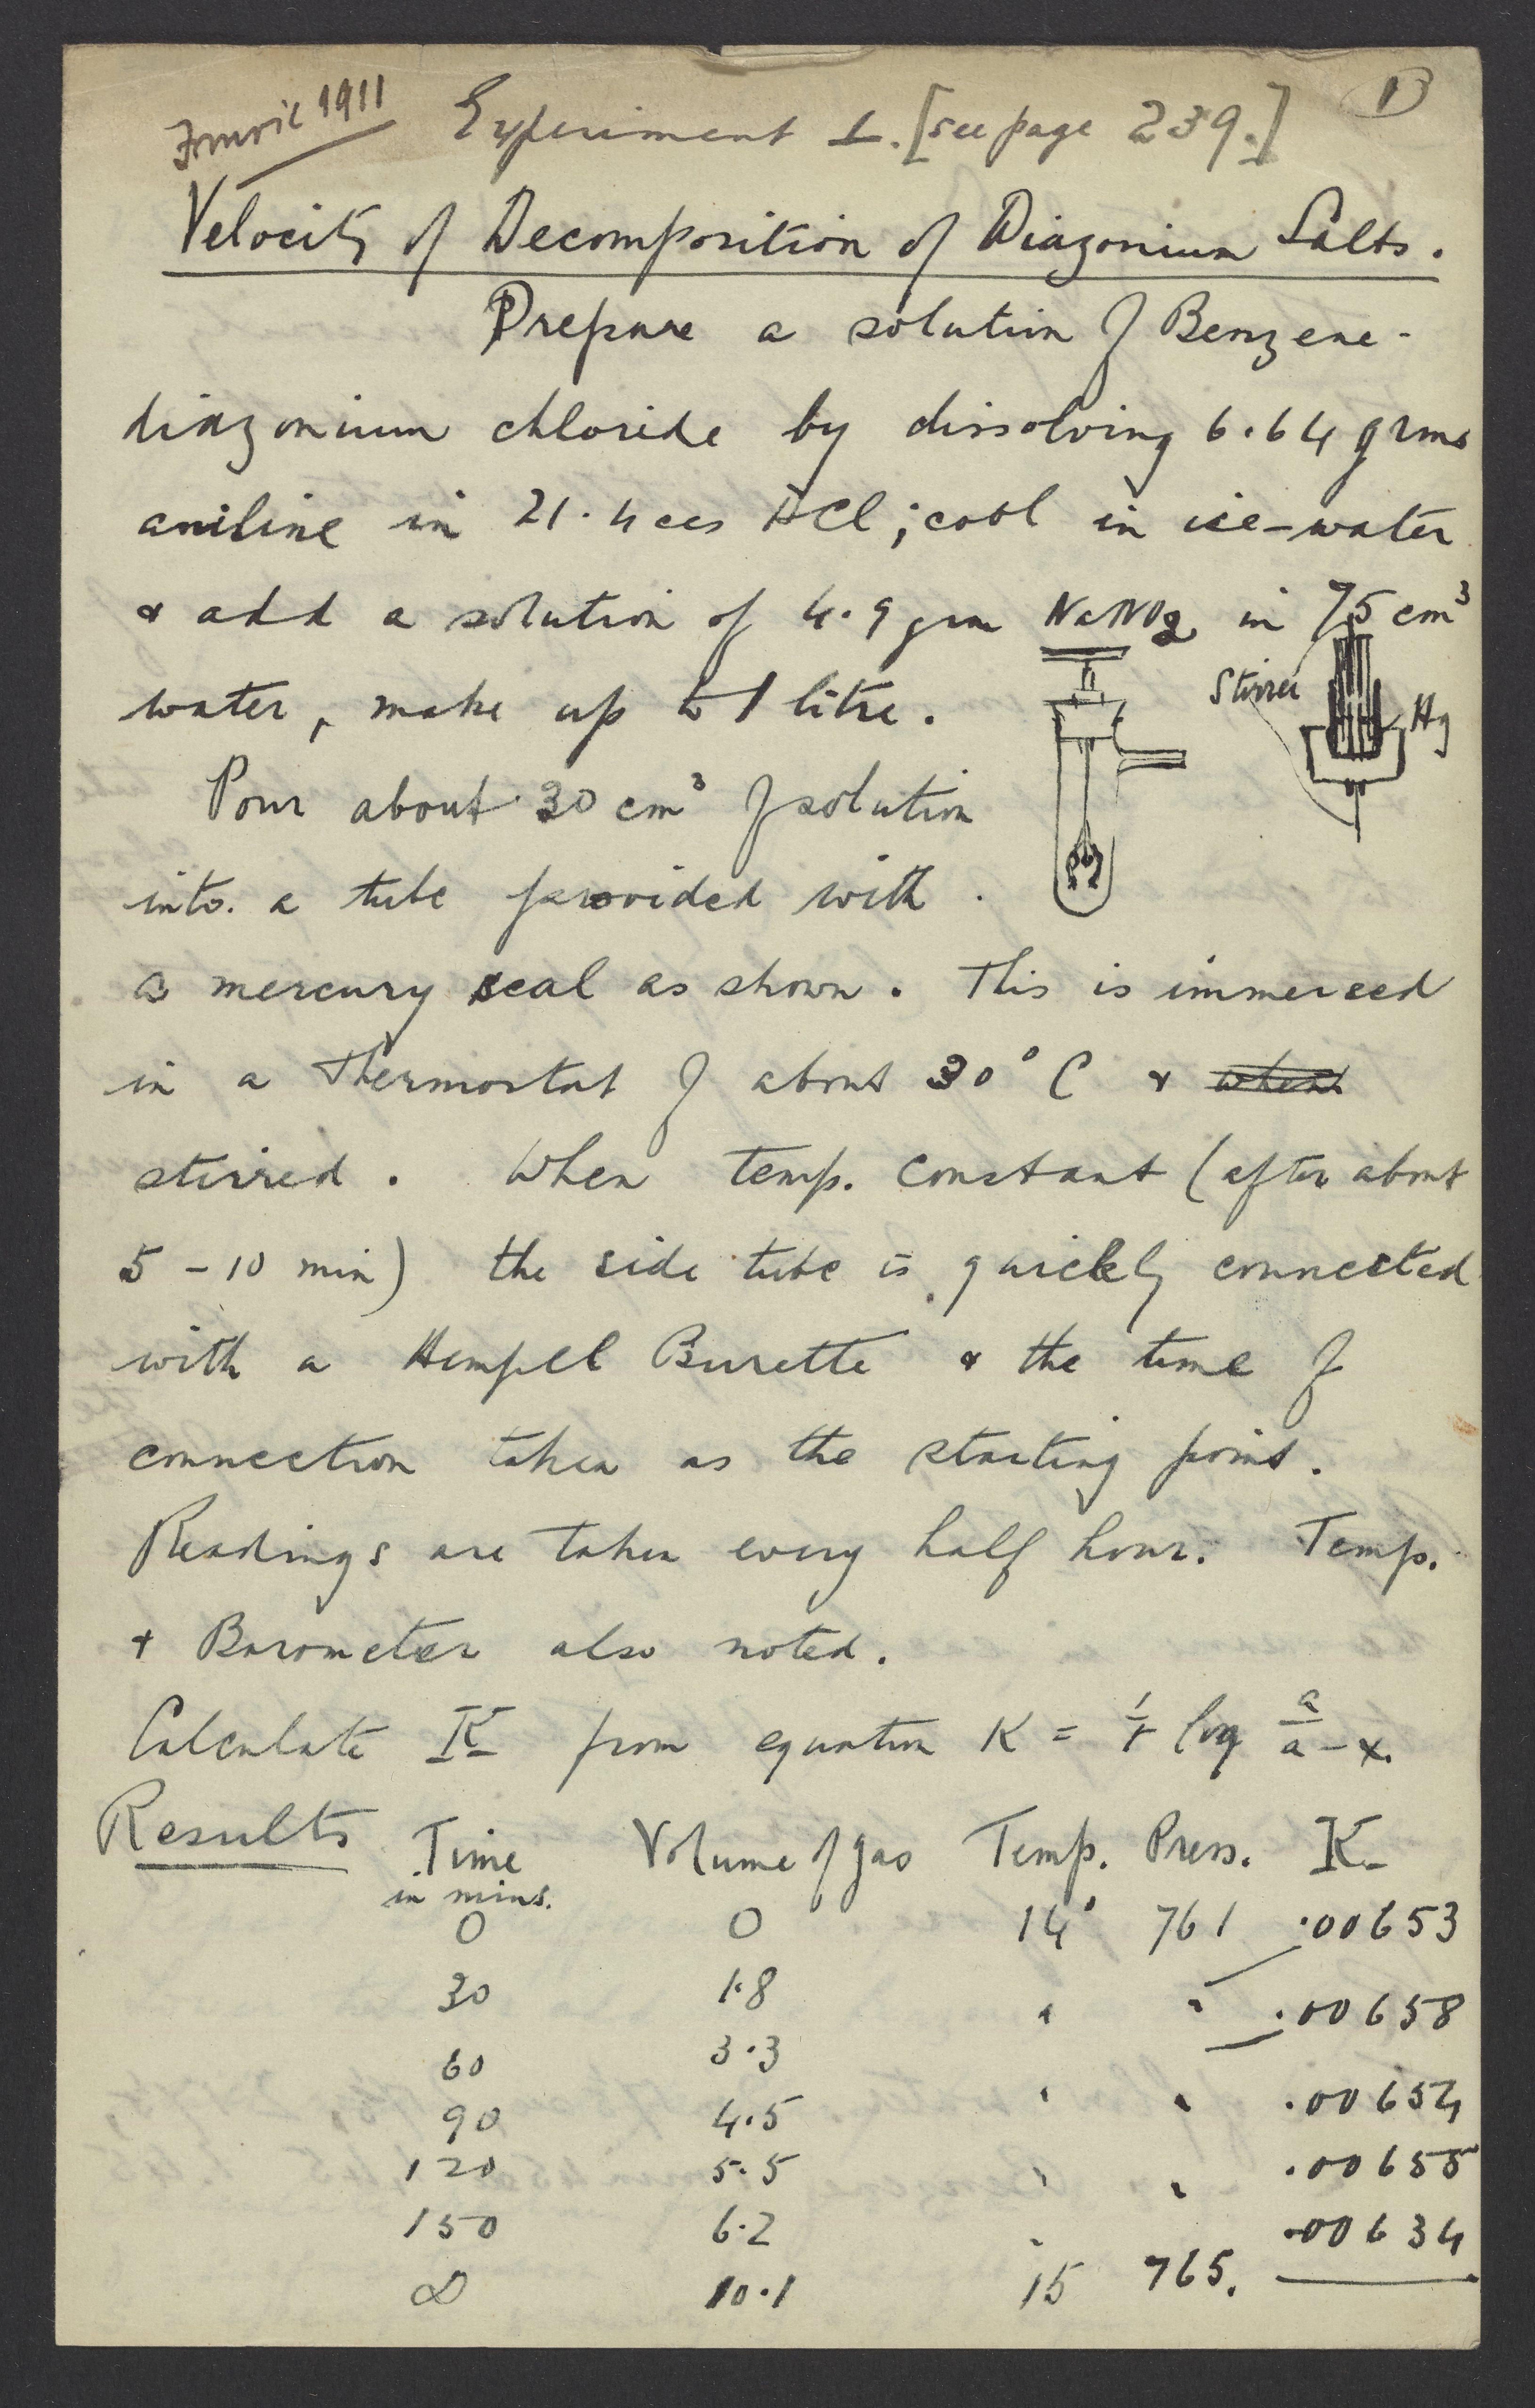 1911
Experiment 1. [see page 239.]
1
Velocity of Decomposition of Diazonium Salts.
Prepare a solution of Benzene-
diazonium chloride by dissolving 6.64 grms
aniline in 21.4 ccs HCl; cool in ice-water
& add a solution of 4.9 grm NaNO2 in 75 cm³
water, make up to 1 litre.
Stirrer
Hg
Pour about 30 cm³ of solution
into a tube provided with
a mercury seal as shown. This is immersed
in a Thermostat of about 30° C & when
stirred. When temp. constant (after about
5 - 10 min) the side tube is quickly connected
with a Hempel Burette & the time of
connection taken as the starting point.
Readings are taken every half hour. Temp.
+ Barometer also noted.
Calculate K from equation K = 1/t log a/a-x.
Results Time in mins. Volume of gas Temp. Press. K
0 0 14° 761 .00653
30 1.8 " " .00658
60 3.3
90 4.5 " " .00654
120 5.5 " " .00655
150 6.2 " .00634
∞ 10.1 15 765.